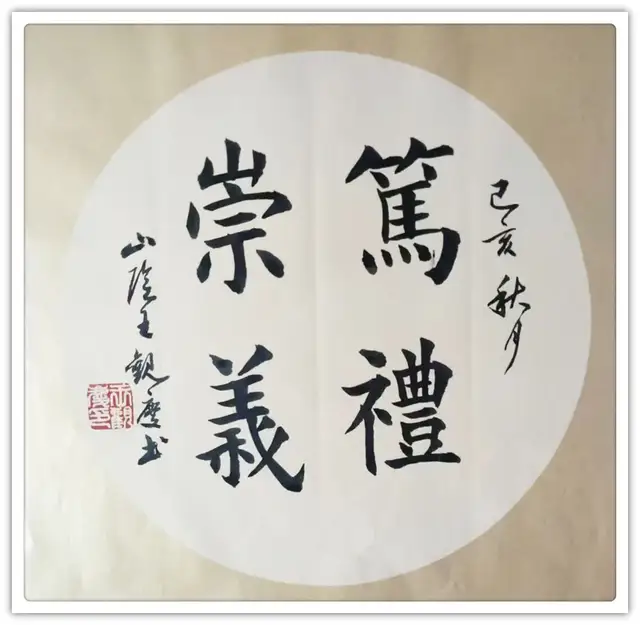 己亥秋月
篤禮
崇義
山陰王觀慶书